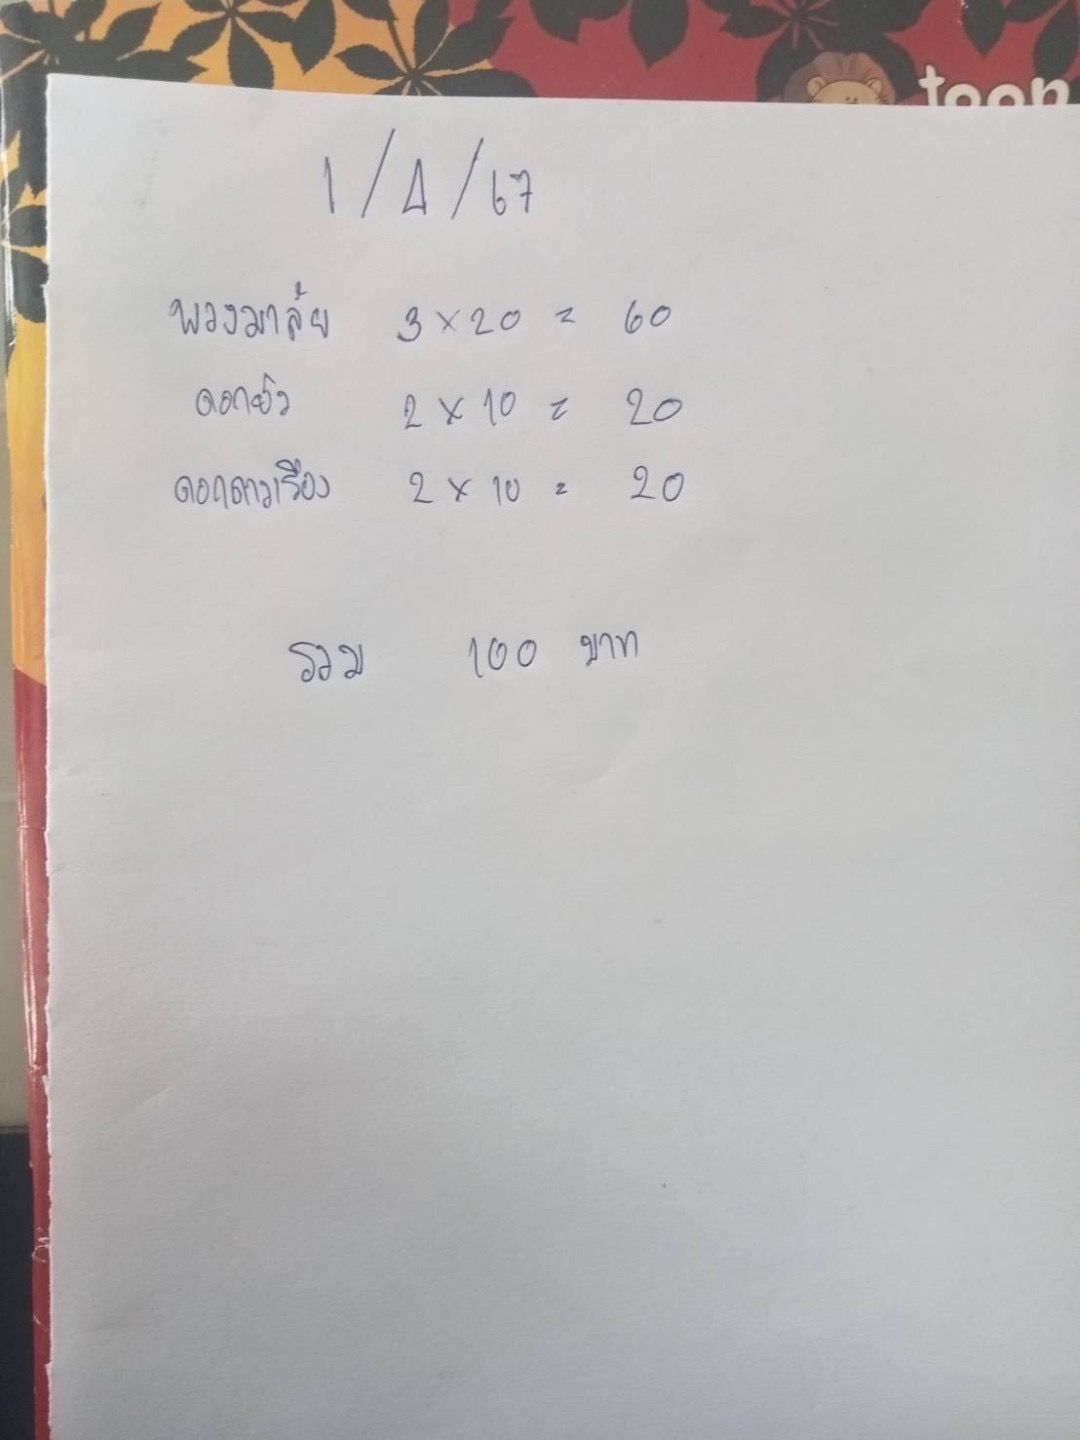 toon
1/4/67
พวงมาลัย 3 x 20 = 60
2 x 10 = 20
ดอกดาวเรือง 2 x 10 = 20
รวม 100 บาท